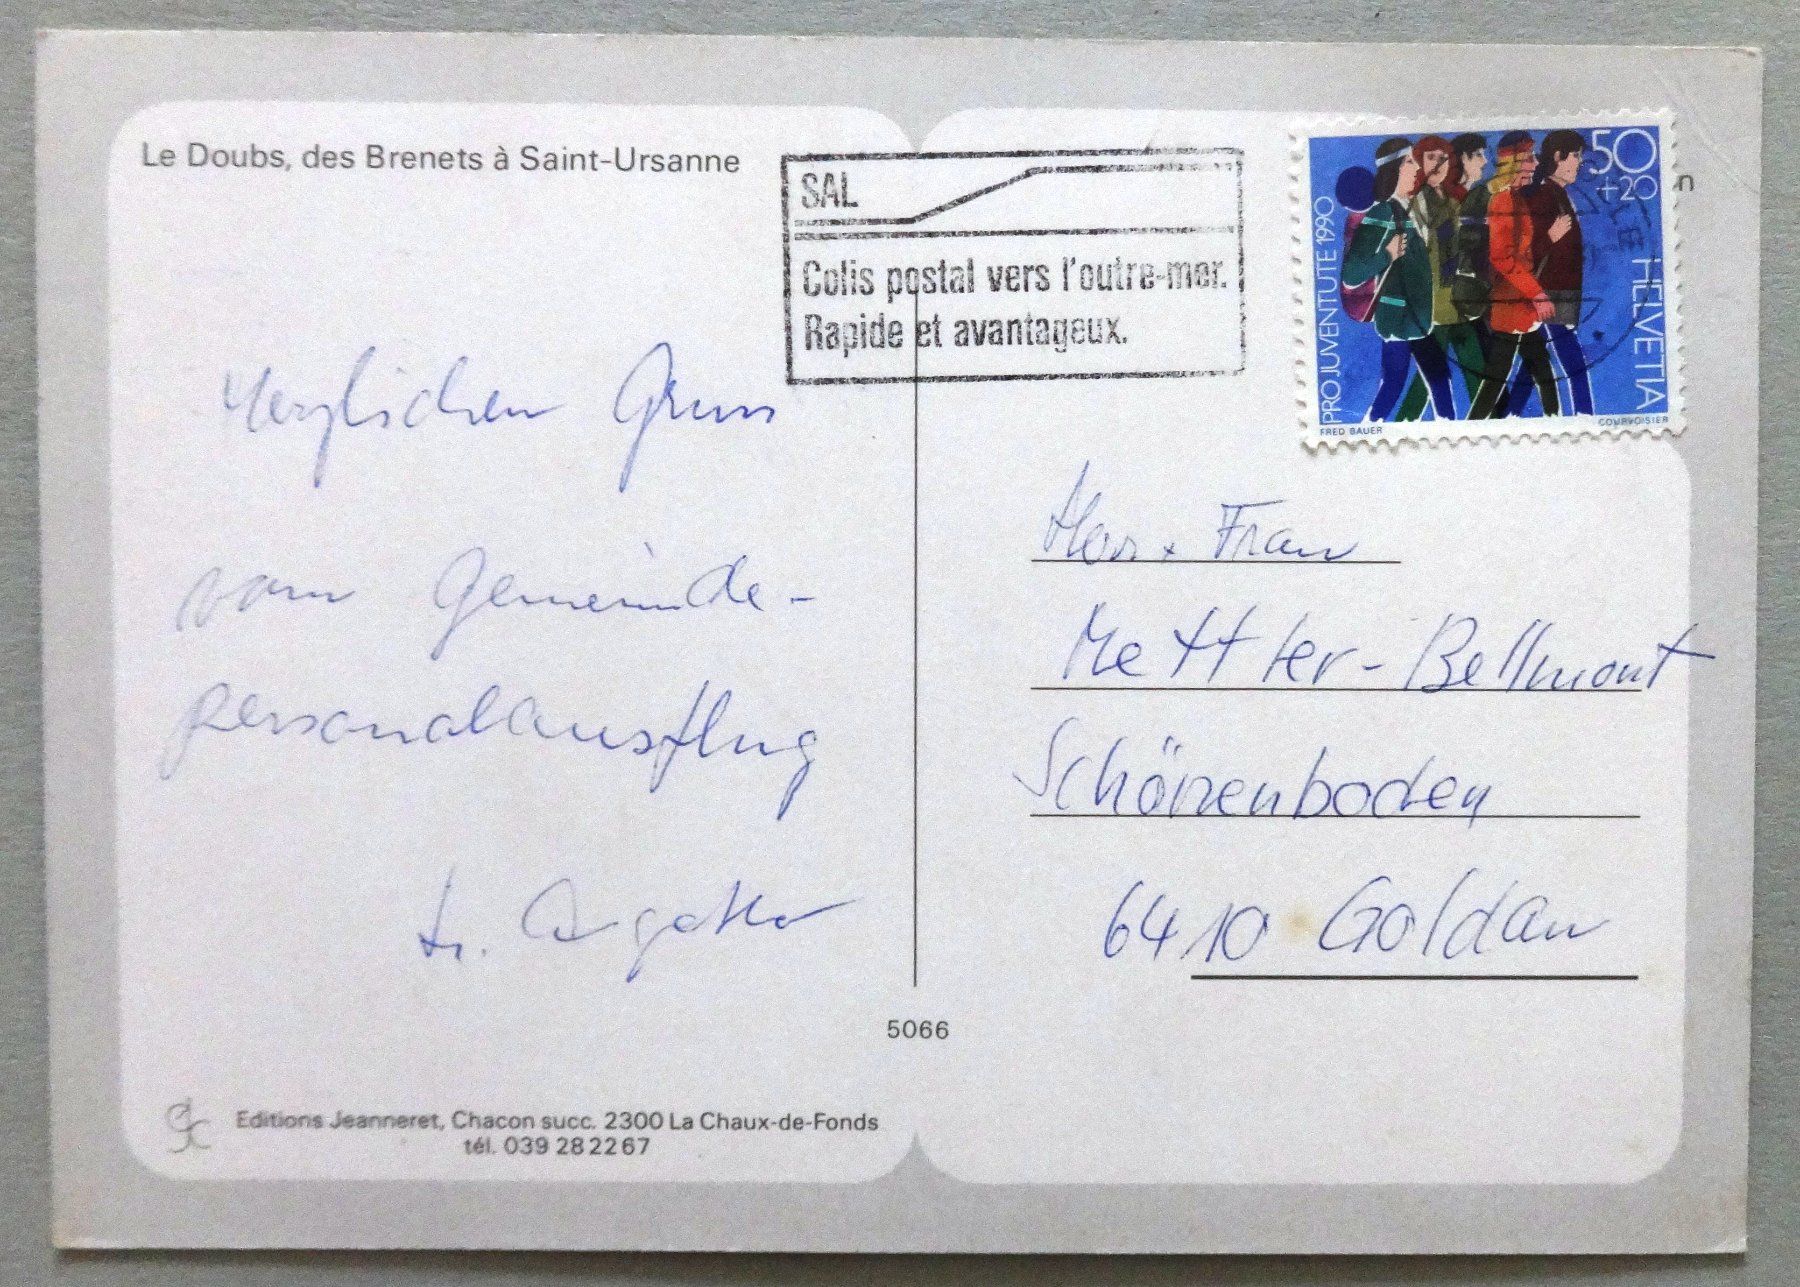 Le Doubs, des Brenets à Saint-Ursanne
SAL
Colis postal vers l'outre-mer.
Rapide et avantageux.
50
+20
PRO JUVENTUTE 1990
HELVETIA
FRED BAUER
COURVOISIER
n
Herzlichen Gruss
vom Gemeinde-
personalausflug
Agatha
Herr + Frau
Mettler-Bellmont
Schönenboden
6410 Goldau
5066
Editions Jeanneret, Chacon succ. 2300 La Chaux-de-Fonds
tél. 039 28 22 67